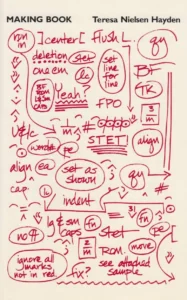 MAKING BOOK Teresa Nielsen Hayden
run in ]center[ flush L. qy
deletion stet set line for line BF
one em ls TK
BF, Rom, lg & sm caps Yeah? FPO 3 m
U&lc m # STET align
words pe
align ea set as shown qy #
cap indent
lg & sm caps fn # pe
no # 2 m stet fn
ROM. move
ignore all marks not in red fix? see attached sample